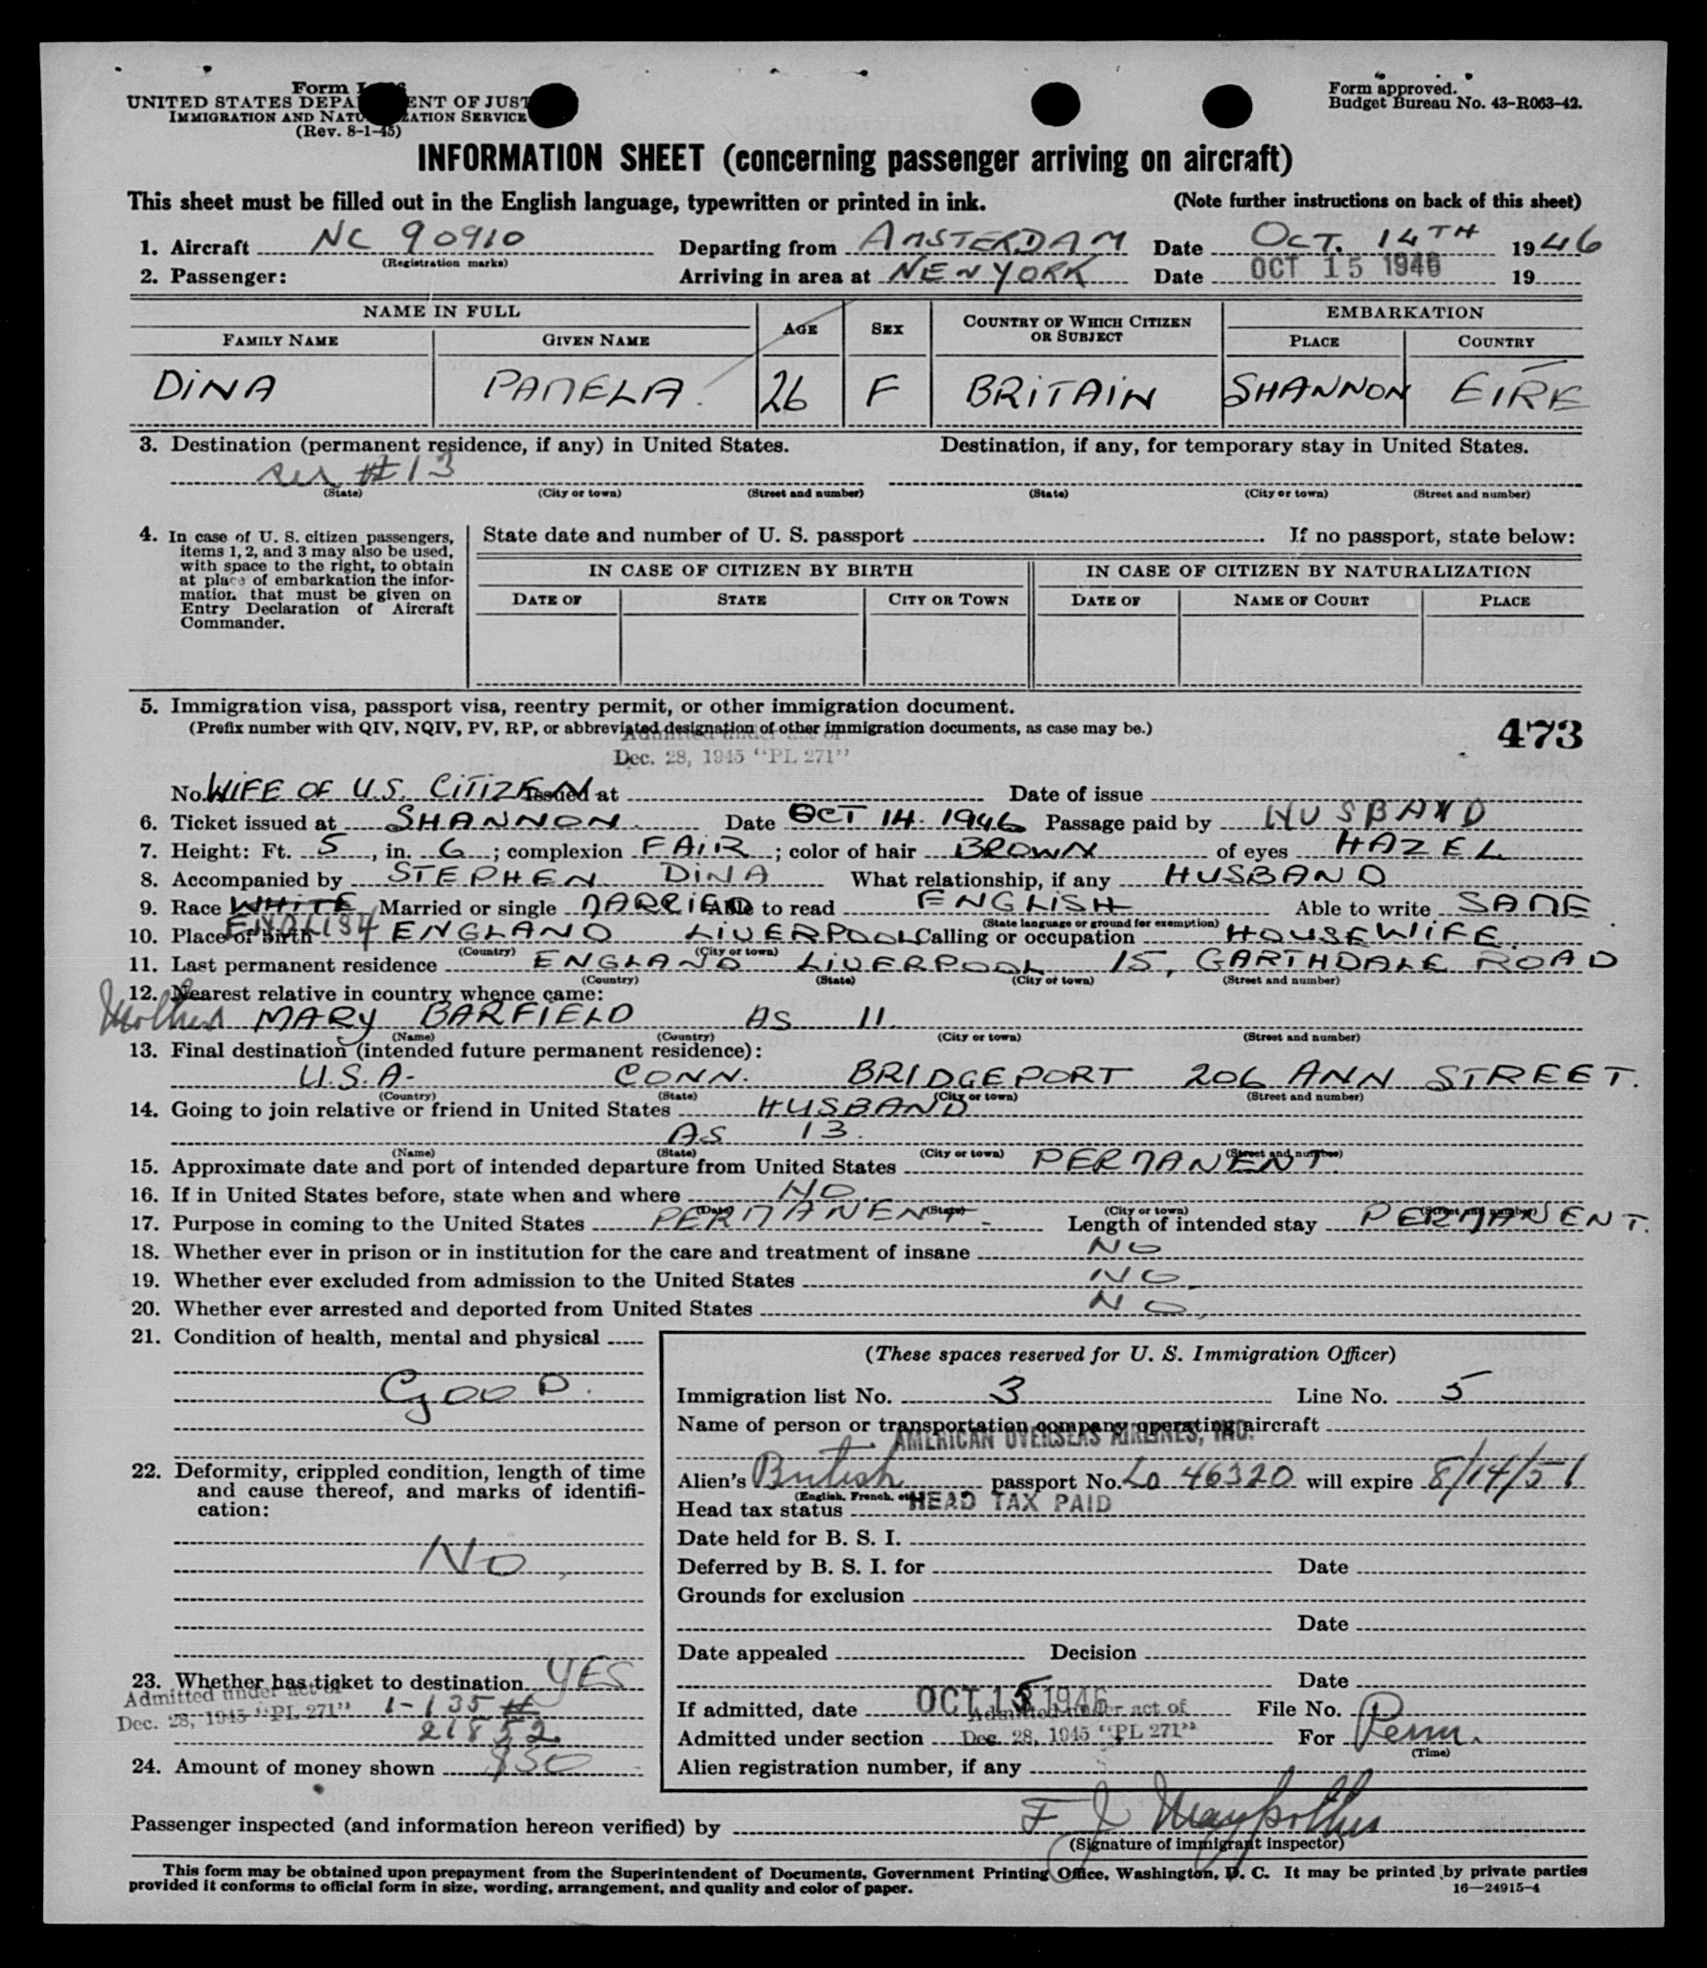 Form I
UNITED STATES DEPA ENT OF JUST
IMMIGRATION AND NATU ZATION SERVICE
(Rev. 8-1-45)
Form approved.
Budget Bureau No. 43-R063-42.
INFORMATION SHEET (concerning passenger arriving on aircraft)
This sheet must be filled out in the English language, typewritten or printed in ink. (Note further instructions on back of this sheet)
1. Aircraft NC 90910 Departing from AMSTERDAM Date OCT. 14TH 1946
(Registration marks)
2. Passenger: Arriving in area at NEW YORK Date OCT 15 1946 19
NAME IN FULL AGE SEX COUNTRY OF WHICH CITIZEN OR SUBJECT EMBARKATION
FAMILY NAME GIVEN NAME PLACE COUNTRY
DINA PAMELA. 26 F BRITAIN SHANNON EIRE
3. Destination (permanent residence, if any) in United States. Destination, if any, for temporary stay in United States.
see #13
(State) (City or town) (Street and number) (State) (City or town) (Street and number)
4. In case of U. S. citizen passengers, items 1, 2, and 3 may also be used, with space to the right, to obtain at place of embarkation the information that must be given on Entry Declaration of Aircraft Commander.
State date and number of U. S. passport If no passport, state below:
IN CASE OF CITIZEN BY BIRTH IN CASE OF CITIZEN BY NATURALIZATION
DATE OF STATE CITY OR TOWN DATE OF NAME OF COURT PLACE
5. Immigration visa, passport visa, reentry permit, or other immigration document.
(Prefix number with QIV, NQIV, PV, RP, or abbreviated designation of other immigration documents, as case may be.) 473
Admitted under act of
Dec. 28, 1945 "PL 271"
No. WIFE OF U.S. CITIZEN Issued at Date of issue
6. Ticket issued at SHANNON. Date OCT 14. 1946 Passage paid by HUSBAND
7. Height: Ft. 5, in. 6; complexion FAIR; color of hair BROWN of eyes HAZEL
8. Accompanied by STEPHEN DINA What relationship, if any HUSBAND
9. Race WHITE Married or single MARRIED Able to read ENGLISH Able to write SAME.
ENGLISH (State language or ground for exemption)
10. Place of birth ENGLAND LIVERPOOL Calling or occupation HOUSEWIFE.
(Country) (City or town)
11. Last permanent residence ENGLAND LIVERPOOL 15, GARTHDALE ROAD
(Country) (State) (City or town) (Street and number)
12. Nearest relative in country whence came:
Mother MARY BARFIELD AS 11.
(Name) (Country) (City or town) (Street and number)
13. Final destination (intended future permanent residence):
U.S.A. CONN. BRIDGEPORT 206 ANN STREET.
(Country) (State) (City or town) (Street and number)
14. Going to join relative or friend in United States HUSBAND
AS 13.
(Name) (State) (City or town) (Street and number)
15. Approximate date and port of intended departure from United States PERMANENT.
16. If in United States before, state when and where NO.
(Date) (State) (City or town) (Street and number)
17. Purpose in coming to the United States PERMANENT. Length of intended stay PERMANENT.
18. Whether ever in prison or in institution for the care and treatment of insane NO
19. Whether ever excluded from admission to the United States NO.
20. Whether ever arrested and deported from United States NO,
21. Condition of health, mental and physical
GOOD.
22. Deformity, crippled condition, length of time and cause thereof, and marks of identification:
NO,
23. Whether has ticket to destination YES
Admitted under act of
Dec. 28, 1945 "PL 271" 1-135 #
21852.
24. Amount of money shown $50
(These spaces reserved for U. S. Immigration Officer)
Immigration list No. 3 Line No. 5
Name of person or transportation company operating aircraft
AMERICAN OVERSEAS AIRLINES, INC.
Alien's British passport No. Lo 46320 will expire 8/14/51
(English, French, etc.)
Head tax status HEAD TAX PAID
Date held for B. S. I.
Deferred by B. S. I. for Date
Grounds for exclusion
Date
Date appealed Decision
Date
If admitted, date OCT 15 1946 File No.
Admitted under act of
Admitted under section Dec. 28, 1945 "PL 271" For Perm.
(Time)
Alien registration number, if any
Passenger inspected (and information hereon verified) by F J
(Signature of immigrant inspector)
This form may be obtained upon prepayment from the Superintendent of Documents, Government Printing Office, Washington, D. C. It may be printed by private parties
provided it conforms to official form in size, wording, arrangement, and quality and color of paper. 16—24915-4